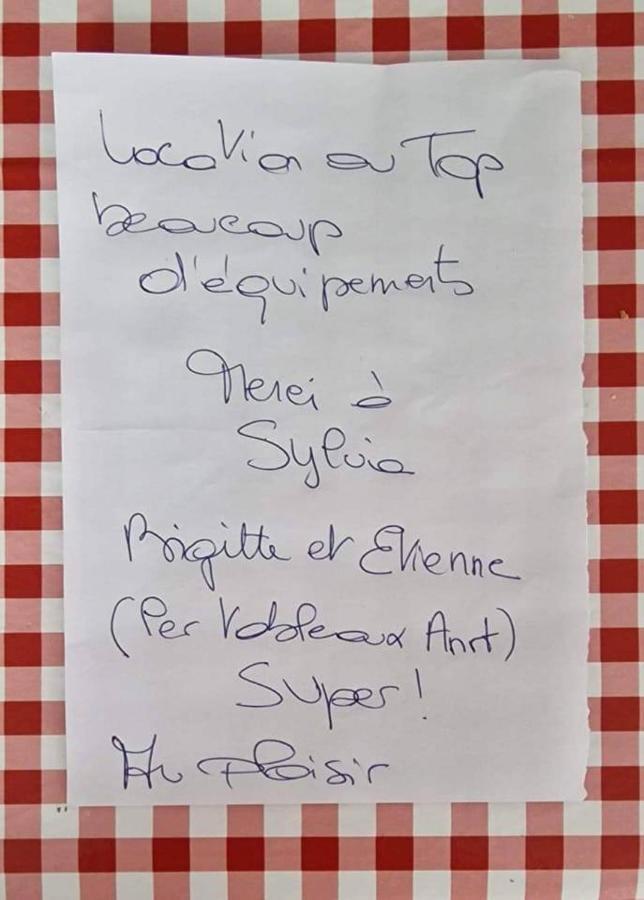 Location au Top
beaucoup
d'équipements
Merci à
Sylvia
Brigitte et Etienne
(Les tableaux Anit)
Super!
Au plaisir